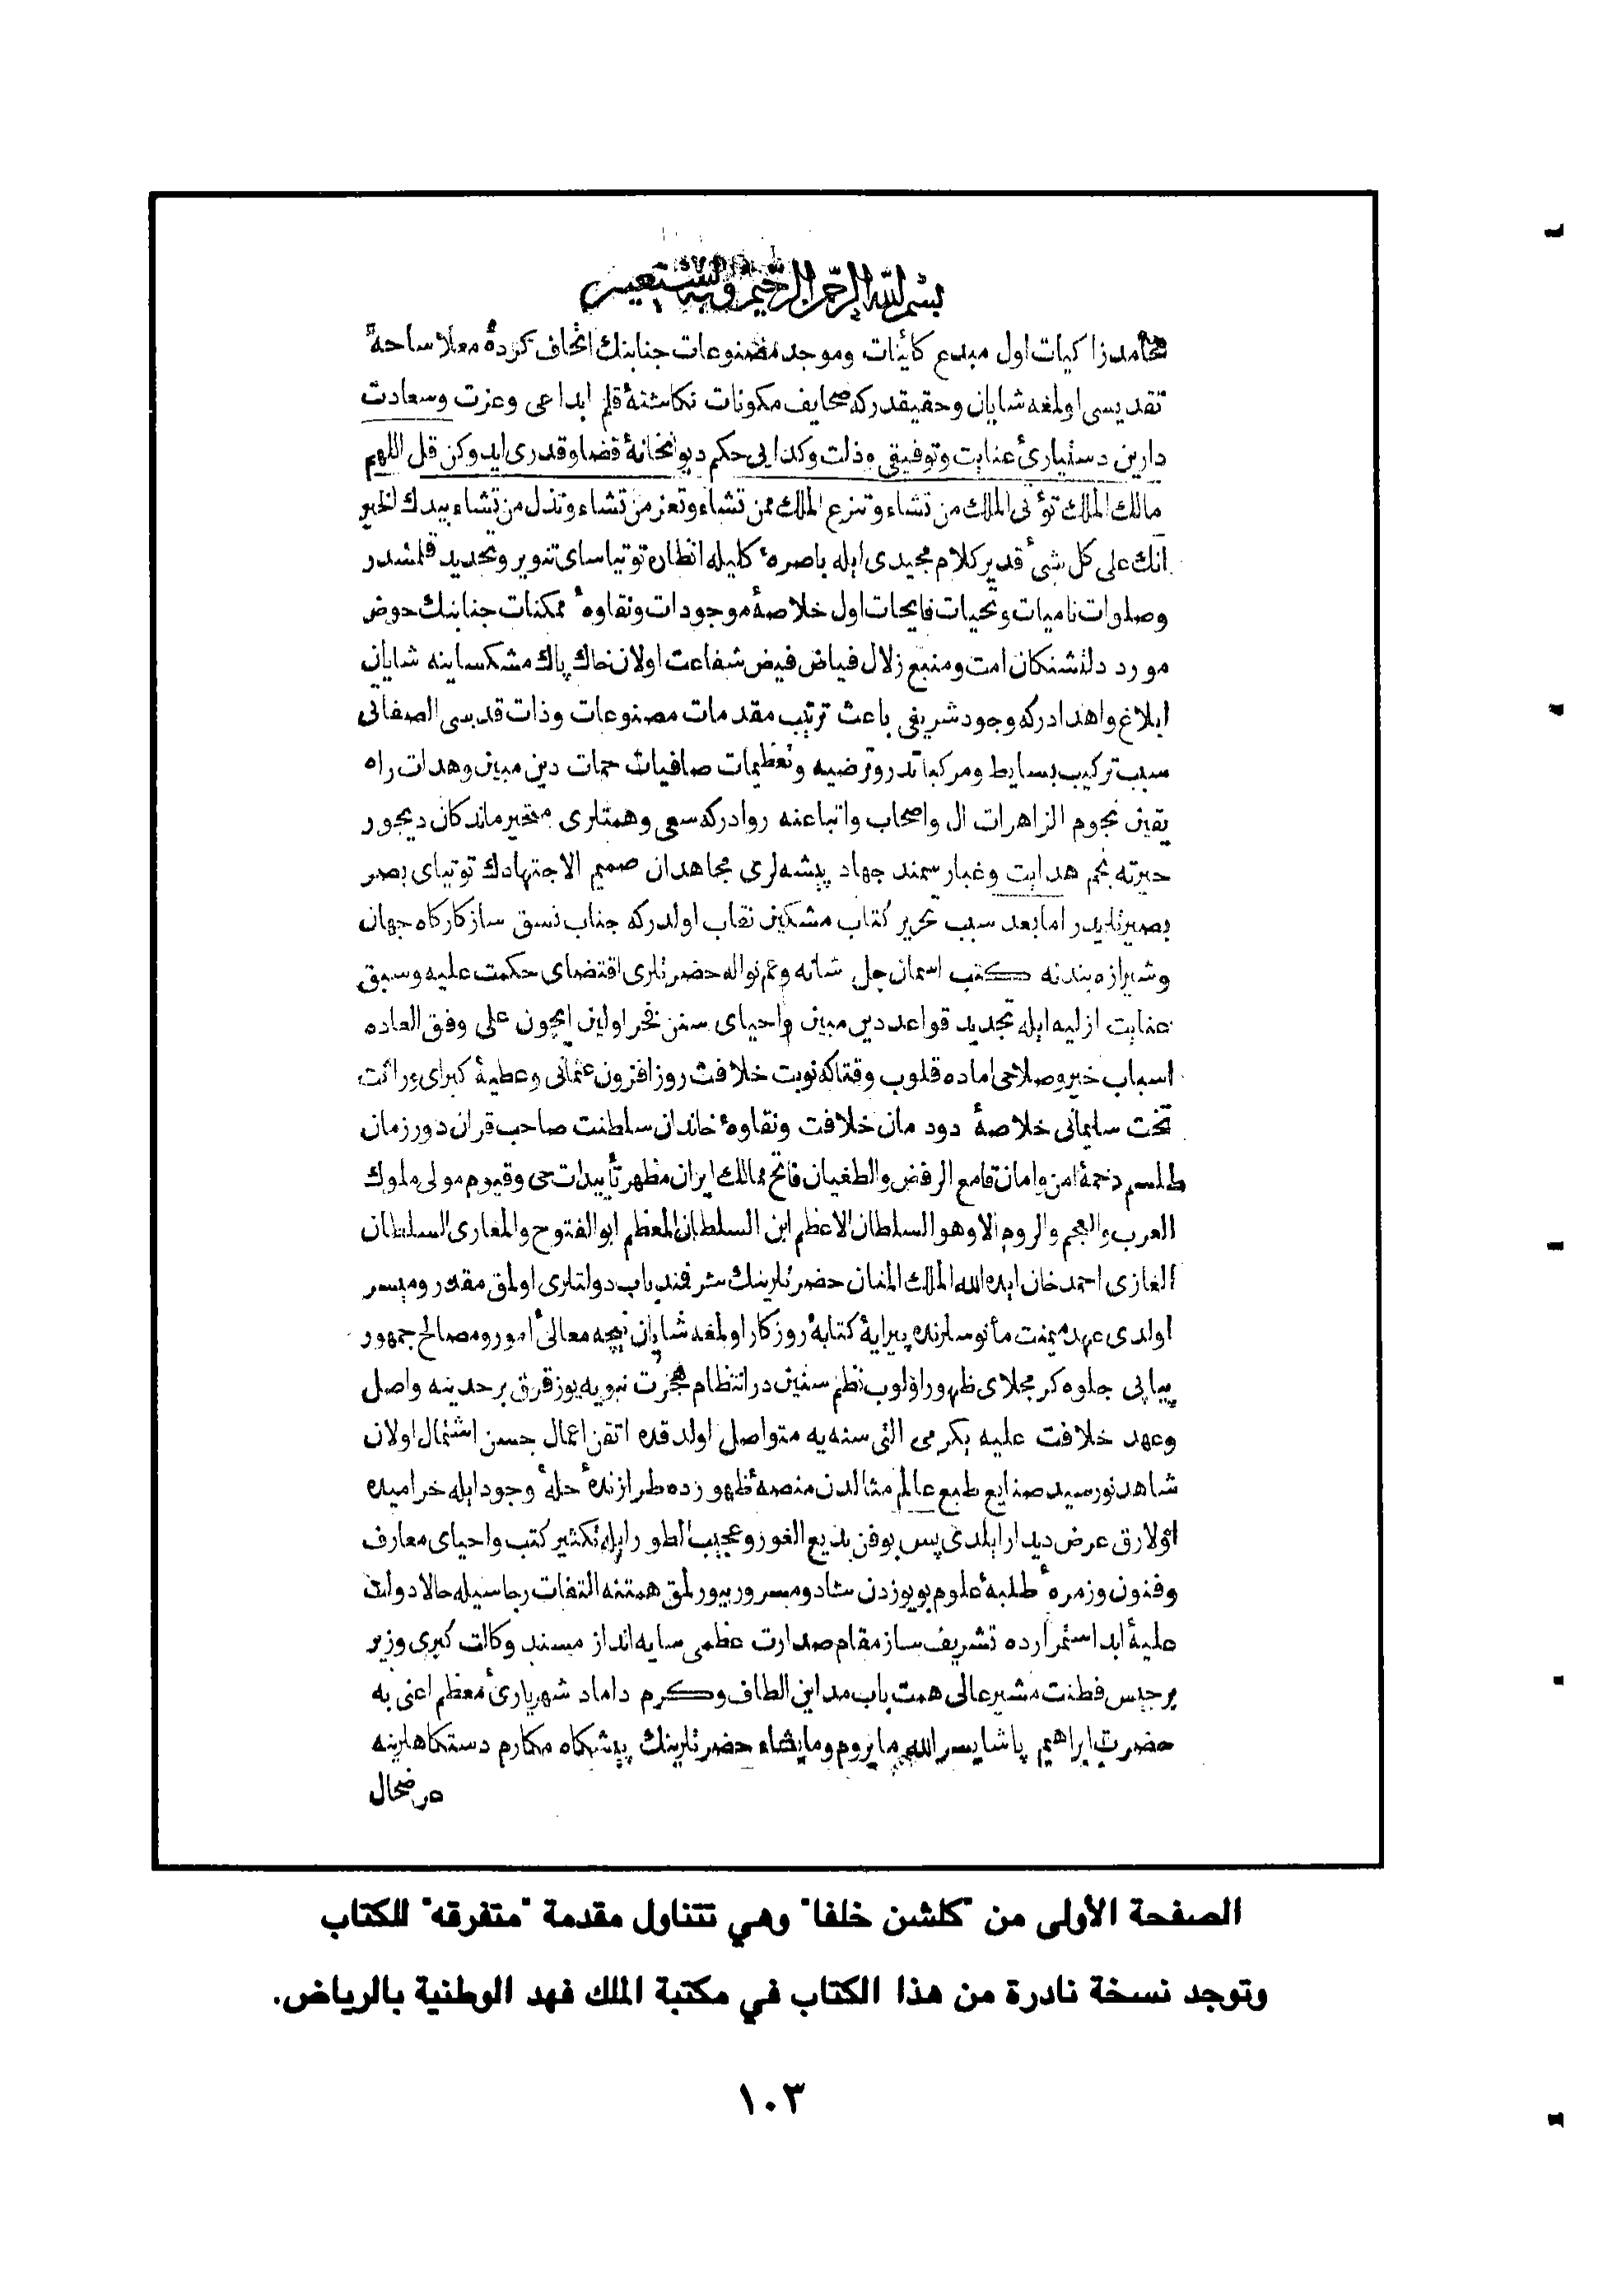 بسم الله الرحمن الرحيم وبه نستعين
محامد زا كيات اول مبدع كائنات وموجد مصنوعات جنابنك اتحاف كردۀ معلا ساحۀ
تقديسى اولمغه شايان وحقيقدركه صحايف مكونات نكاشتۀ قلم ابداعى وعزت وسعادت
دارين دستيارىء عنايت وتوفيقى وذلت وكدايى حكم ديوانخانۀ قضا وقدرى ايدوكن قل اللهم
مالك الملك تؤتى الملك من تشاء وتنزع الملك ممن تشاء وتعز من تشاء وتذل من تشاء بيدك الخير
انك على كل شىء قدير كلام مجيدى ايله باصرۀ كليله انظاره توتياساى تنوير وتحديد قلمشدر
وصلوات ناميات وتحيات فايحات اول خلاصۀ موجودات ونقاوۀ ممكنات جنابنك حوض
مورد دلتشنكان امت ومنبع زلال فياض فيض شفاعت اولان خاك پاك مشكساينه شايان
ابلاغ واهدادركه وجود شريفى باعث ترتيب مقدمات مصنوعات وذات قدسى الصفاتى
سبب تركيب بسايط ومركباتدر وترضيه وتعظيمات صافيات حمات دين مبين وهدات راه
يقين نجوم الزاهرات ال واصحاب واتباعنه روادركه سعى وهمتلرى متحير ماندكان ديجور
حيرته نجم هدايت وغبار سمند جهاد پيشه‌لرى مجاهدان صميم الاجتهادك توتياى بصر
بصيرتلريدر اما بعد سبب تحرير كتاب مشكين نقاب اولدركه جناب نسق ساز كاركاه جهان
وشيرازه بندنه كتب اسمان جل شانه وعم نواله حضرتلرى اقتضاى حكمت عليه وسبق
عنايت ازليه ايله تجديد قواعد دين مبين واحياى سنن فخر اولين ايچون على وفق العاده
اسباب خير وصلاحى اماده قلوب وقتاكه نوبت خلافت روز افزون عثمانى وعطيۀ كبراى وراثت
تخت سليمانى خلاصۀ دودمان خلافت ونقاوۀ خاندان سلطنت صاحب قران دور زمان
طلسم دخمۀ امن وامان قامع الرفض والطغيان فاتح ممالك ايران مظهر تأييدات حى وقيوم مولى ملوك
العرب والعجم والروم الا وهو السلطان الاعظم ابن السلطان المعظم ابو الفتوح والمغازى السلطان
الغازى احمد خان ايده الله الملك المنان حضرتلرينك شرفند باب دولتلرى اولمق مقدر وميسر
اولدى عهد ميمنت مأنوسلرنده پيرايۀ كتابۀ روزكار اولمغه شايان نيچه معالىء امور ومصالح جمهور
پياپى جلوه كر مجلاى ظهور اولوب نظم سنين در انتظام هجرت نبويه يوز قرق بر حدينه واصل
وعهد خلافت عليه يكرمى التى سنه‌يه متواصل اولدقده اتقن اعمال حسن اشتمال اولان
شاهد نورسيد صنايع طبع عالم مثالدن منصۀ ظهورده طرازندۀ حلۀ وجود ايله خراميده
اولارق عرض ديدار ايلدى پس بو فن بديع الغور وعجيب الطور ايله تكثير كتب واحياى معارف
وفنون وزمرۀ طلبۀ علوم بو يوزدن شاد ومسرور بيورلمق همتنه التفات رجاسيله حالا دولت
عليۀ ابد استمرارده تشريف ساز مقام صدارت عظمى سايه انداز مسند وكالت كبرى وزير
برجيس فطنت مشير عالى همت باب مداين الطاف وكرم داماد شهريارىء معظم اعنى به
حضرت ابراهيم پاشا يسر الله ما يروم وما يشاء حضرتلرينك پيشكاه مكارم دستكاهلرينه
عرضحال
الصفحة الأولى من "كلشن خلفا" وهي تتناول مقدمة "متفرقه" للكتاب
وتوجد نسخة نادرة من هذا الكتاب في مكتبة الملك فهد الوطنية بالرياض.
١٠٣